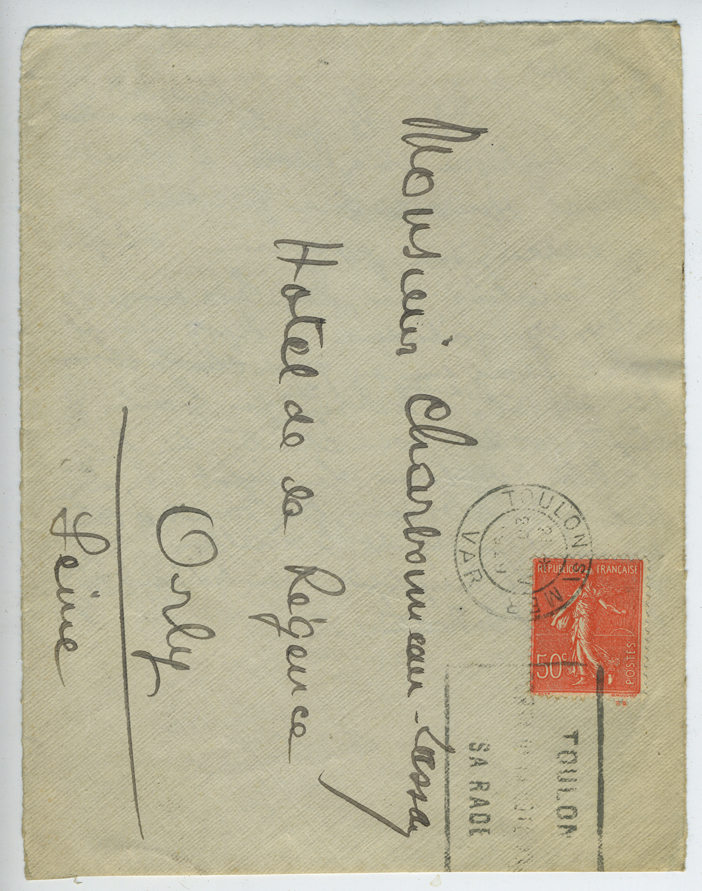 Monsieur Charbonneau-Lassay
Hotel de la Régence
Orly
Seine
TOULON S/ MER
VAR
RÉPUBLIQUE FRANÇAISE
50c
POSTES
TOULON
SA RADE